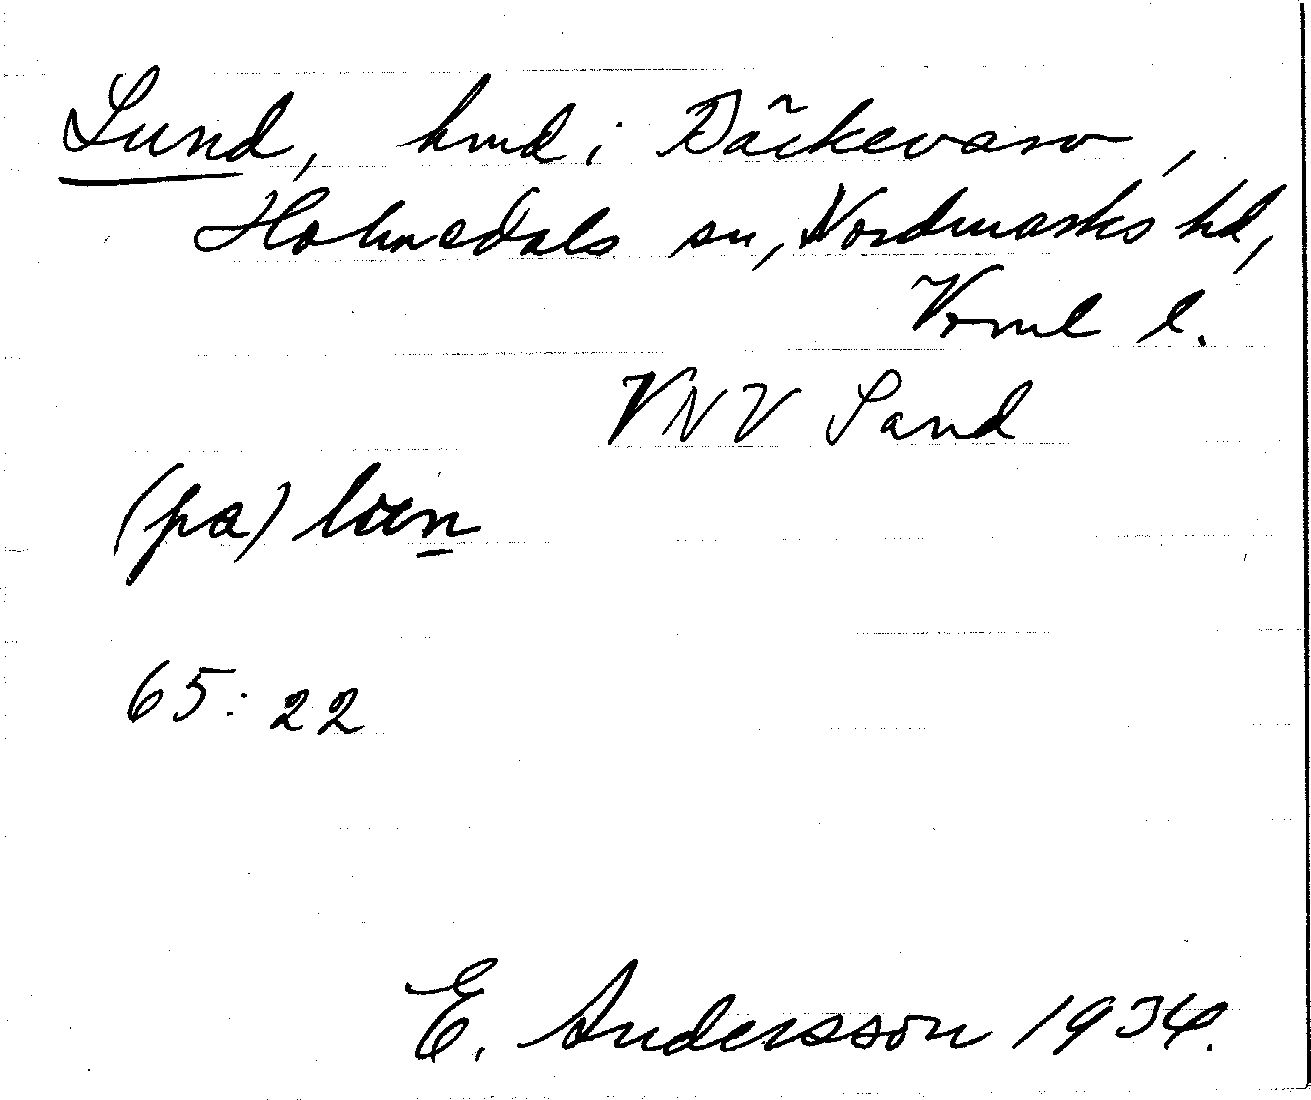 Lund, hmd i Bäckevarv,
Holmedals sn, Nordmarks hd,
Vrml l.
VNV Sand
(pa) lœn
65:22
E. Andersson 1934.